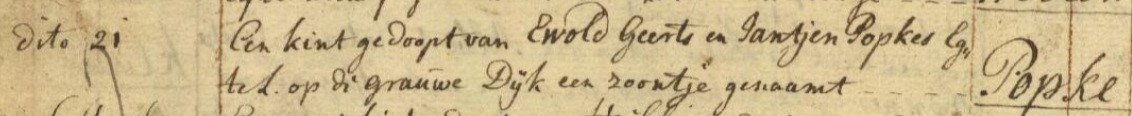 dito 21 Een kint gedoopt van Ewold Geerts en Jantjen Popkes Eg„
te L. op de grauwe Dijk een zoontje genaamt - - - - - Popke